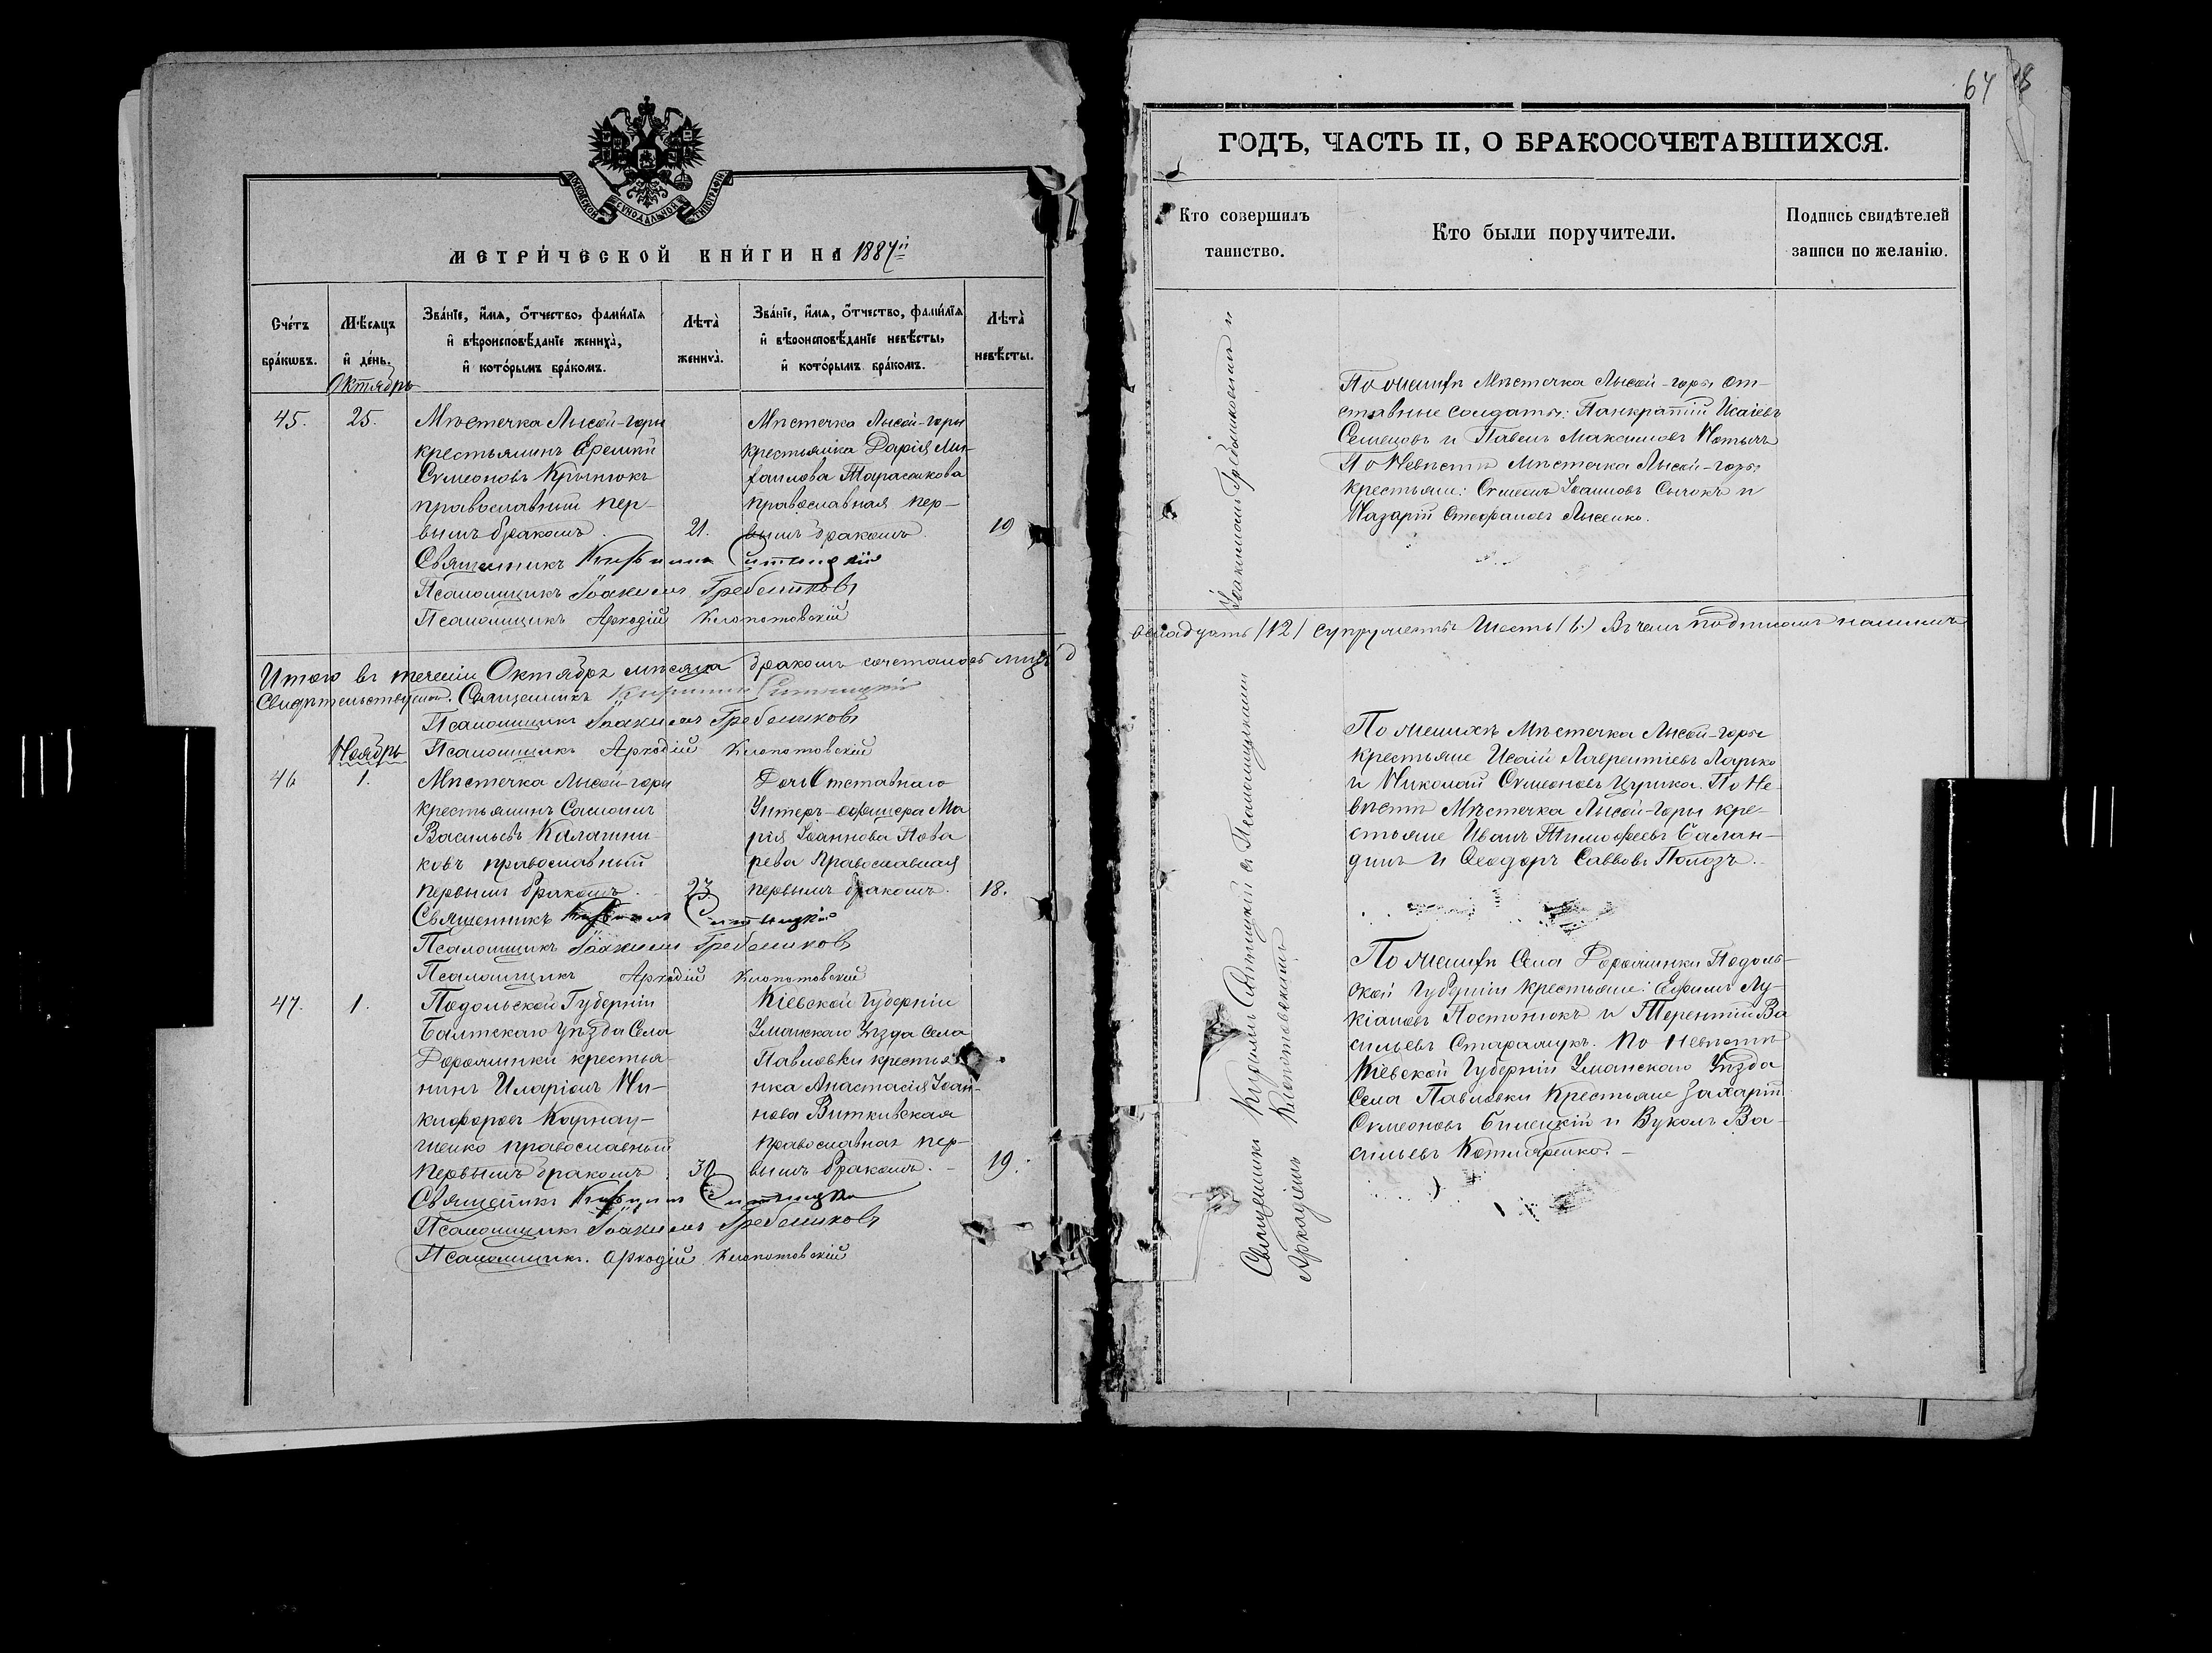 64
МОСКОВСКОЙ СѴНОДАЛЬНОЙ ТИПОГРАФІИ
МЕТРИ́ЧЕСКОЙ КНИ́ГИ НА 1887й
Сче́тъ бра́кѡвъ.
Мѣ́сяцъ и҆ де́нь.
Зва́нїе, и҆́мѧ, ѻ҆́тчество, фами́лїѧ
и҆ вѣроисповѣ́данїе жениха̀,
и҆ кото́рымъ бра́комъ.
Лѣта̀ жениха̀.
Зва́нїе, и҆́мѧ, ѻ҆́тчество, фами́лїѧ
и҆ вѣроисповѣ́данїе невѣ́сты,
и҆ кото́рымъ бра́комъ.
Лѣта̀ невѣ́сты.
Октябрь
45. 25.
Мѣстечка Лысой-горы
крестьянинъ Еремій
Сѵмеоновъ Крытокъ
православный пер-
вымъ бракомъ.
21.
Мѣстечка Лысой-горы
крестьянка Дарія Ми-
хаилова Тарасикова
православная пер-
вымъ бракомъ.
19
Священникъ Кириллъ Ситницкій
Псаломщикъ Іоакимъ Гребениковъ
Псаломщикъ Аркадій Клопотовскій
Итого въ теченіи Октября мѣсяца бракомъ сочеталось лицъ д
свидѣтельствуемъ. Священникъ Кириллъ Ситницкій
Псаломщикъ Іоакимъ Гребениковъ
Псаломщикъ Аркадій Клопотовскій
Ноябрь
46 1.
Мѣстечка Лысой-горы
крестьянинъ Самоилъ
Васильевъ Калашни-
ковъ православный
первымъ бракомъ.
23
Дочь Отставнаго
Унтеръ-офицера Ма
рія Іоаннова Пова
рева Православная
первымъ бракомъ.
18.
Священникъ Кириллъ Ситницкій
Псаломщикъ Іоакимъ Гребениковъ
Псаломщикъ Аркадій Клопотовскій
47. 1.
Подольской Губерніи
Балтскаго уѣзда Села
крестья-
нинъ Иларіонъ Ни-
кифоровъ Карнау-
шенко православный
первымъ бракомъ.
30
Кіевской Губерніи
Уманскаго Уѣзда Села
Павловки крестья
нка Анастасія Іоан-
нова Виткивская
православная пер-
вымъ бракомъ. -
19.
Священникъ Кириллъ Ситницкій
Псаломщикъ Іоакимъ Гребениковъ
Псаломщикъ. Аркадій Клопотовскій
ГОДЪ, ЧАСТЬ II, О БРАКОСОЧЕТАВШИХСЯ.
Кто совершилъ таинство.
Кто были поручители.
Подпись свидѣтелей записи по желанію.
Священникъ Кириллъ Ситницкій съ Псаломщиками Іоакимомъ Гребениковымъ и
Аркадіемъ Клопотовскимъ
По женихѣ Мѣстечка Лысой-горы от-
ставные солдаты: Панкратій Исаіевъ
Семецовъ и Павелъ Максимовъ
По Невѣстѣ Мѣстечка Лысой-горы
крестьяне: Сѵмеонъ Іоанновъ Сычокъ и
Назарій Стефановъ Лысенко.
венадцать (12) супружествъ Шесть (6.) Въ чемъ подписомъ нашимъ
По женихѣ Мѣстечка Лысой-горы
крестьяне Исаій Лаврентіевъ Ларько
и Николай Сѵмеоновъ Цуцика. По Не
вѣстѣ Мѣстечка Лысой-горы кре-
стьяне Иванъ Тимофеевъ Балан-
динъ и Ѳеодоръ Саввовъ Полозъ.
По женихѣ Села Подоль-
ской Губерніи крестьяне: Ефимъ Лу-
кіановъ Постонюкъ и Терентій Ва
сильевъ По невѣстѣ
Кіевской Губерніи Уманскаго Уѣзда
Села Павловки Крестьяне Захарій
Сѵмеоновъ Билецкій и Вуколъ Ва-
сильевъ Котляренко. -